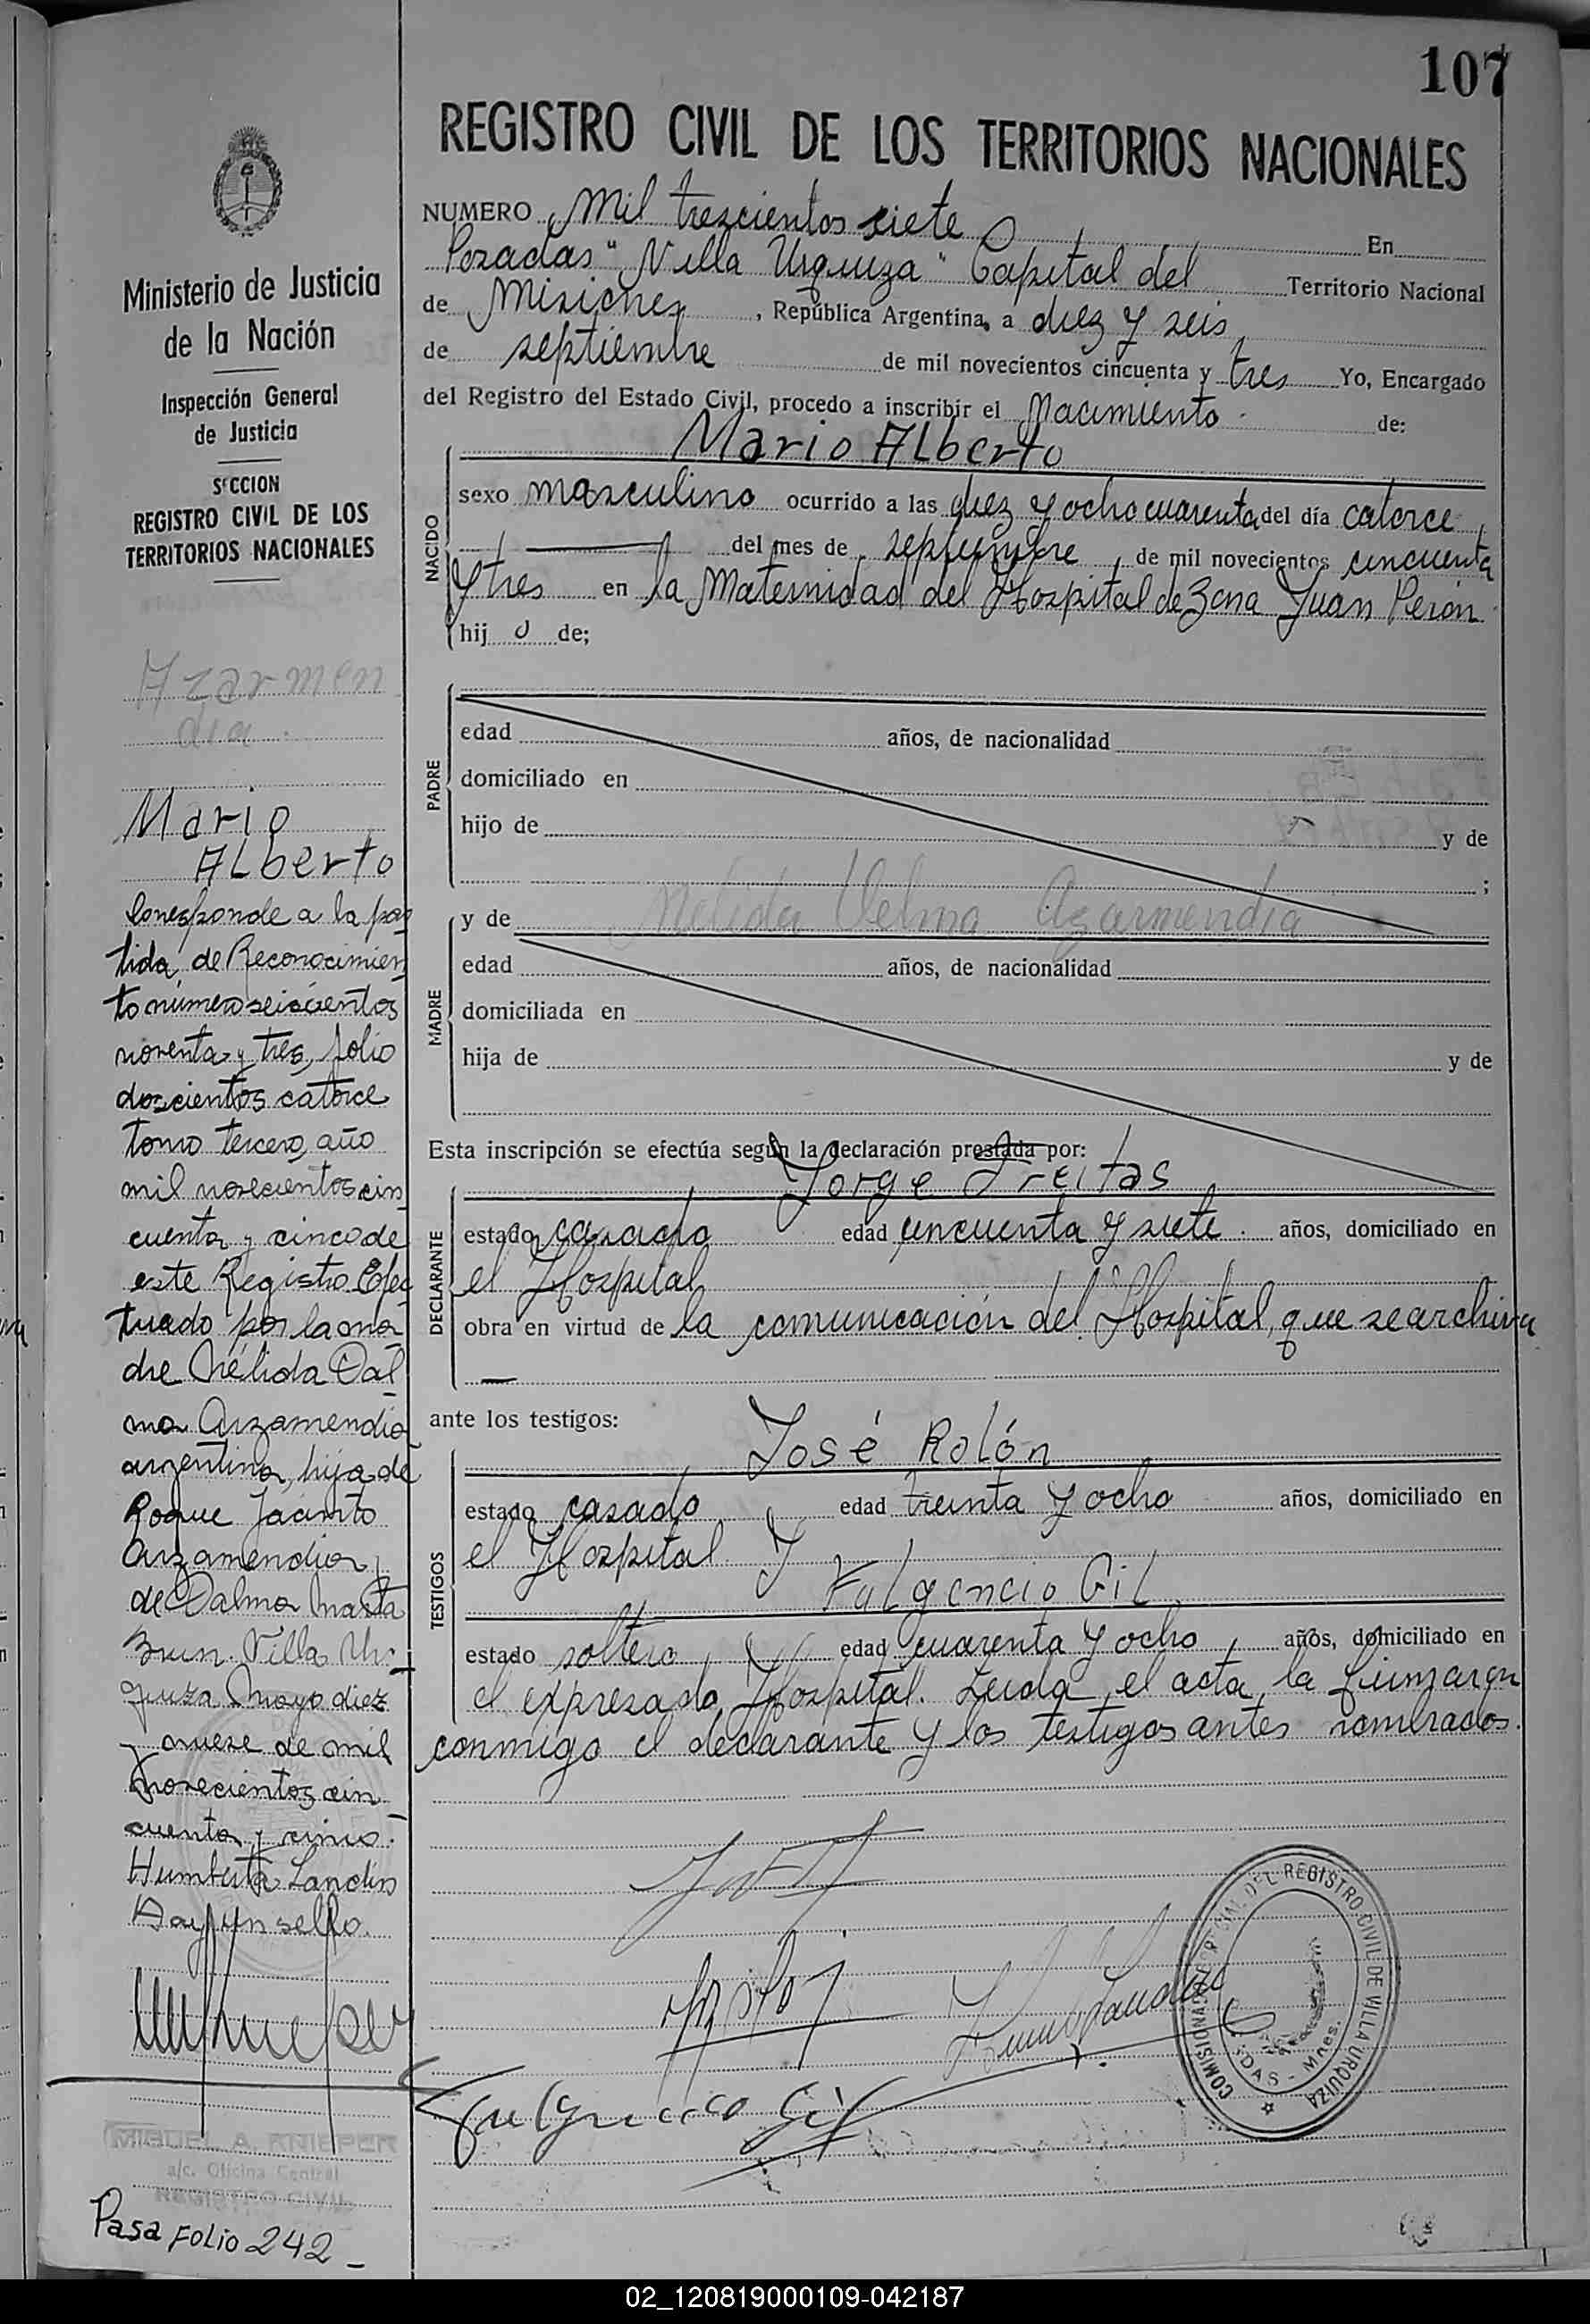 107
REGISTRO CIVIL DE LOS TERRITORIOS NACIONALES
NUMERO Mil trescientos siete En
Posadas "Villa Urquiza" Capital del Territorio Nacional
de Misiones, República Argentina, a diez y seis
de septiembre de mil novecientos cincuenta y tres Yo, Encargado
del Registro del Estado Civil, procedo a inscribir el Nacimiento de:
Mario ALberto
NACIDO
sexo masculino ocurrido a las diez y ocho cuarenta del día catorce,
del mes de septiembre, de mil novecientos cincuenta
y tres en la Maternidad del Hospital de Zona Juan Perón
hijo de;
PADRE
edad años, de nacionalidad
domiciliado en
hijo de y de
;
MADRE
y de Nelida Velma Azarmendia
edad años, de nacionalidad
domiciliada en
hija de y de
Esta inscripción se efectúa según la declaración prestada por:
Jorge Freitas
DECLARANTE
estado casado edad cincuenta y siete años, domiciliado en
el Hospital
obra en virtud de la comunicación del Hospital, que se archiva
ante los testigos:
José Rolón
TESTIGOS
estado casado edad treinta y ocho años, domiciliado en
el Hospital y
Fulgencio Gil
estado soltero, edad cuarenta y ocho, años, domiciliado en
el expresado Hospital. Leida el acta, la firmaron
conmigo el declarante y los testigos antes nombrados.
Fulgencio Gil
DEL REGISTRO CIVIL DE VILLA URQUIZA
DAS - Mnes.
Ministerio de Justicia
de la Nación
Inspección General
de Justicia
SECCION
REGISTRO CIVIL DE LOS
TERRITORIOS NACIONALES
Azarmen
dia
Mario
ALberto
Corresponde a la par
tida de Reconocimien
to número seiscientos
noventa y tres, folio
doscientos catorce
tomo tercero, año
mil novecientos cin
cuenta y cinco de
este Registro. Efec
tuado por la ma
dre Nélida Dal
ma Arzamendia
argentina, hija de
Roque Jacinto
Arzamendia y
de Dalma Marta
Brun. Villa Ur
quiza Mayo diez
y nueve de mil
novecientos cin
cuenta y cinco.
Humberto Landin
Hay un sello.
MIGUEL A. KNIEPER
a/c. Oficina Central
REGISTRO CIVIL
Pasa FOLIO 242
02_120819000109-042187